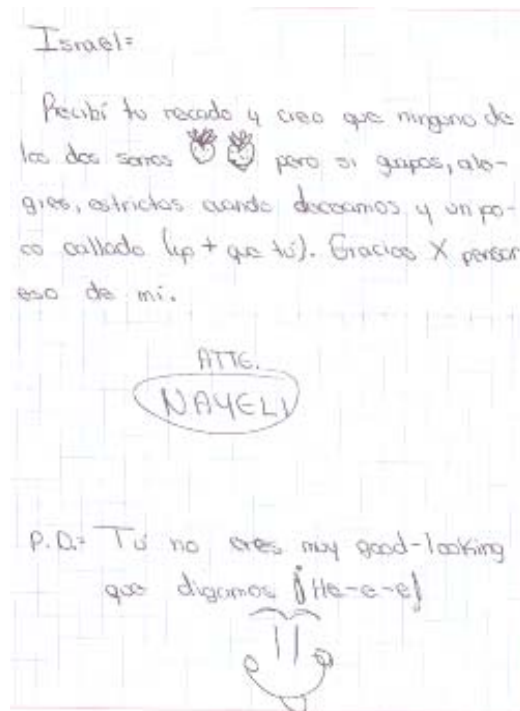 Israel=
Recibí tu recado y creo que ninguno de
los dos somos pero si guapos, ale-
gres, estrictos cuando deceamos y un po-
co callado (yo + que tú). Gracias X pensar
eso de mi.
ATTE.
NAYELI
P.D.= Tú no eres muy good-looking
que digamos ¡He-e-e!